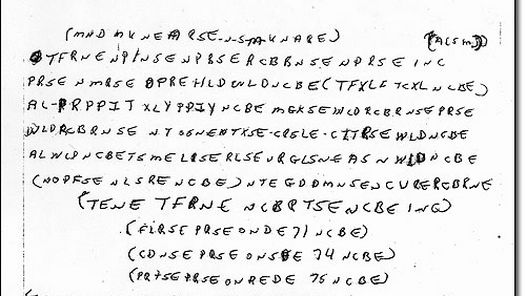 (MND MKNEARSE-N-S-MKNARE) (ACSM)
TFRNENPINSENPRSERCBRNSENPRSEINC
PRSENMRSEOPREHLDWLDNCBE(TFXLFTCXLNCBE)
AL-PRPPITXLYPPIYNCBEMGKSEWCDRCBRNSEPRSE
WLDRCBRNSENTSGNENTXSE-CRSLE-CITRSEWLDNCBE
ALWLPNCBETSMELRSERLSEURGLSNEASNWLDNCBE
(NOPFSENLSRENCBE)NTEGDDMNSENCURERCBRNE
(TENETFRNENCBRTSENCBEING)
(FIRSEPRSEONDE71NCBE)
(CDNSEPRSEONSDE74NCBE)
(PRTSEPRSEONREDE75NCBE)